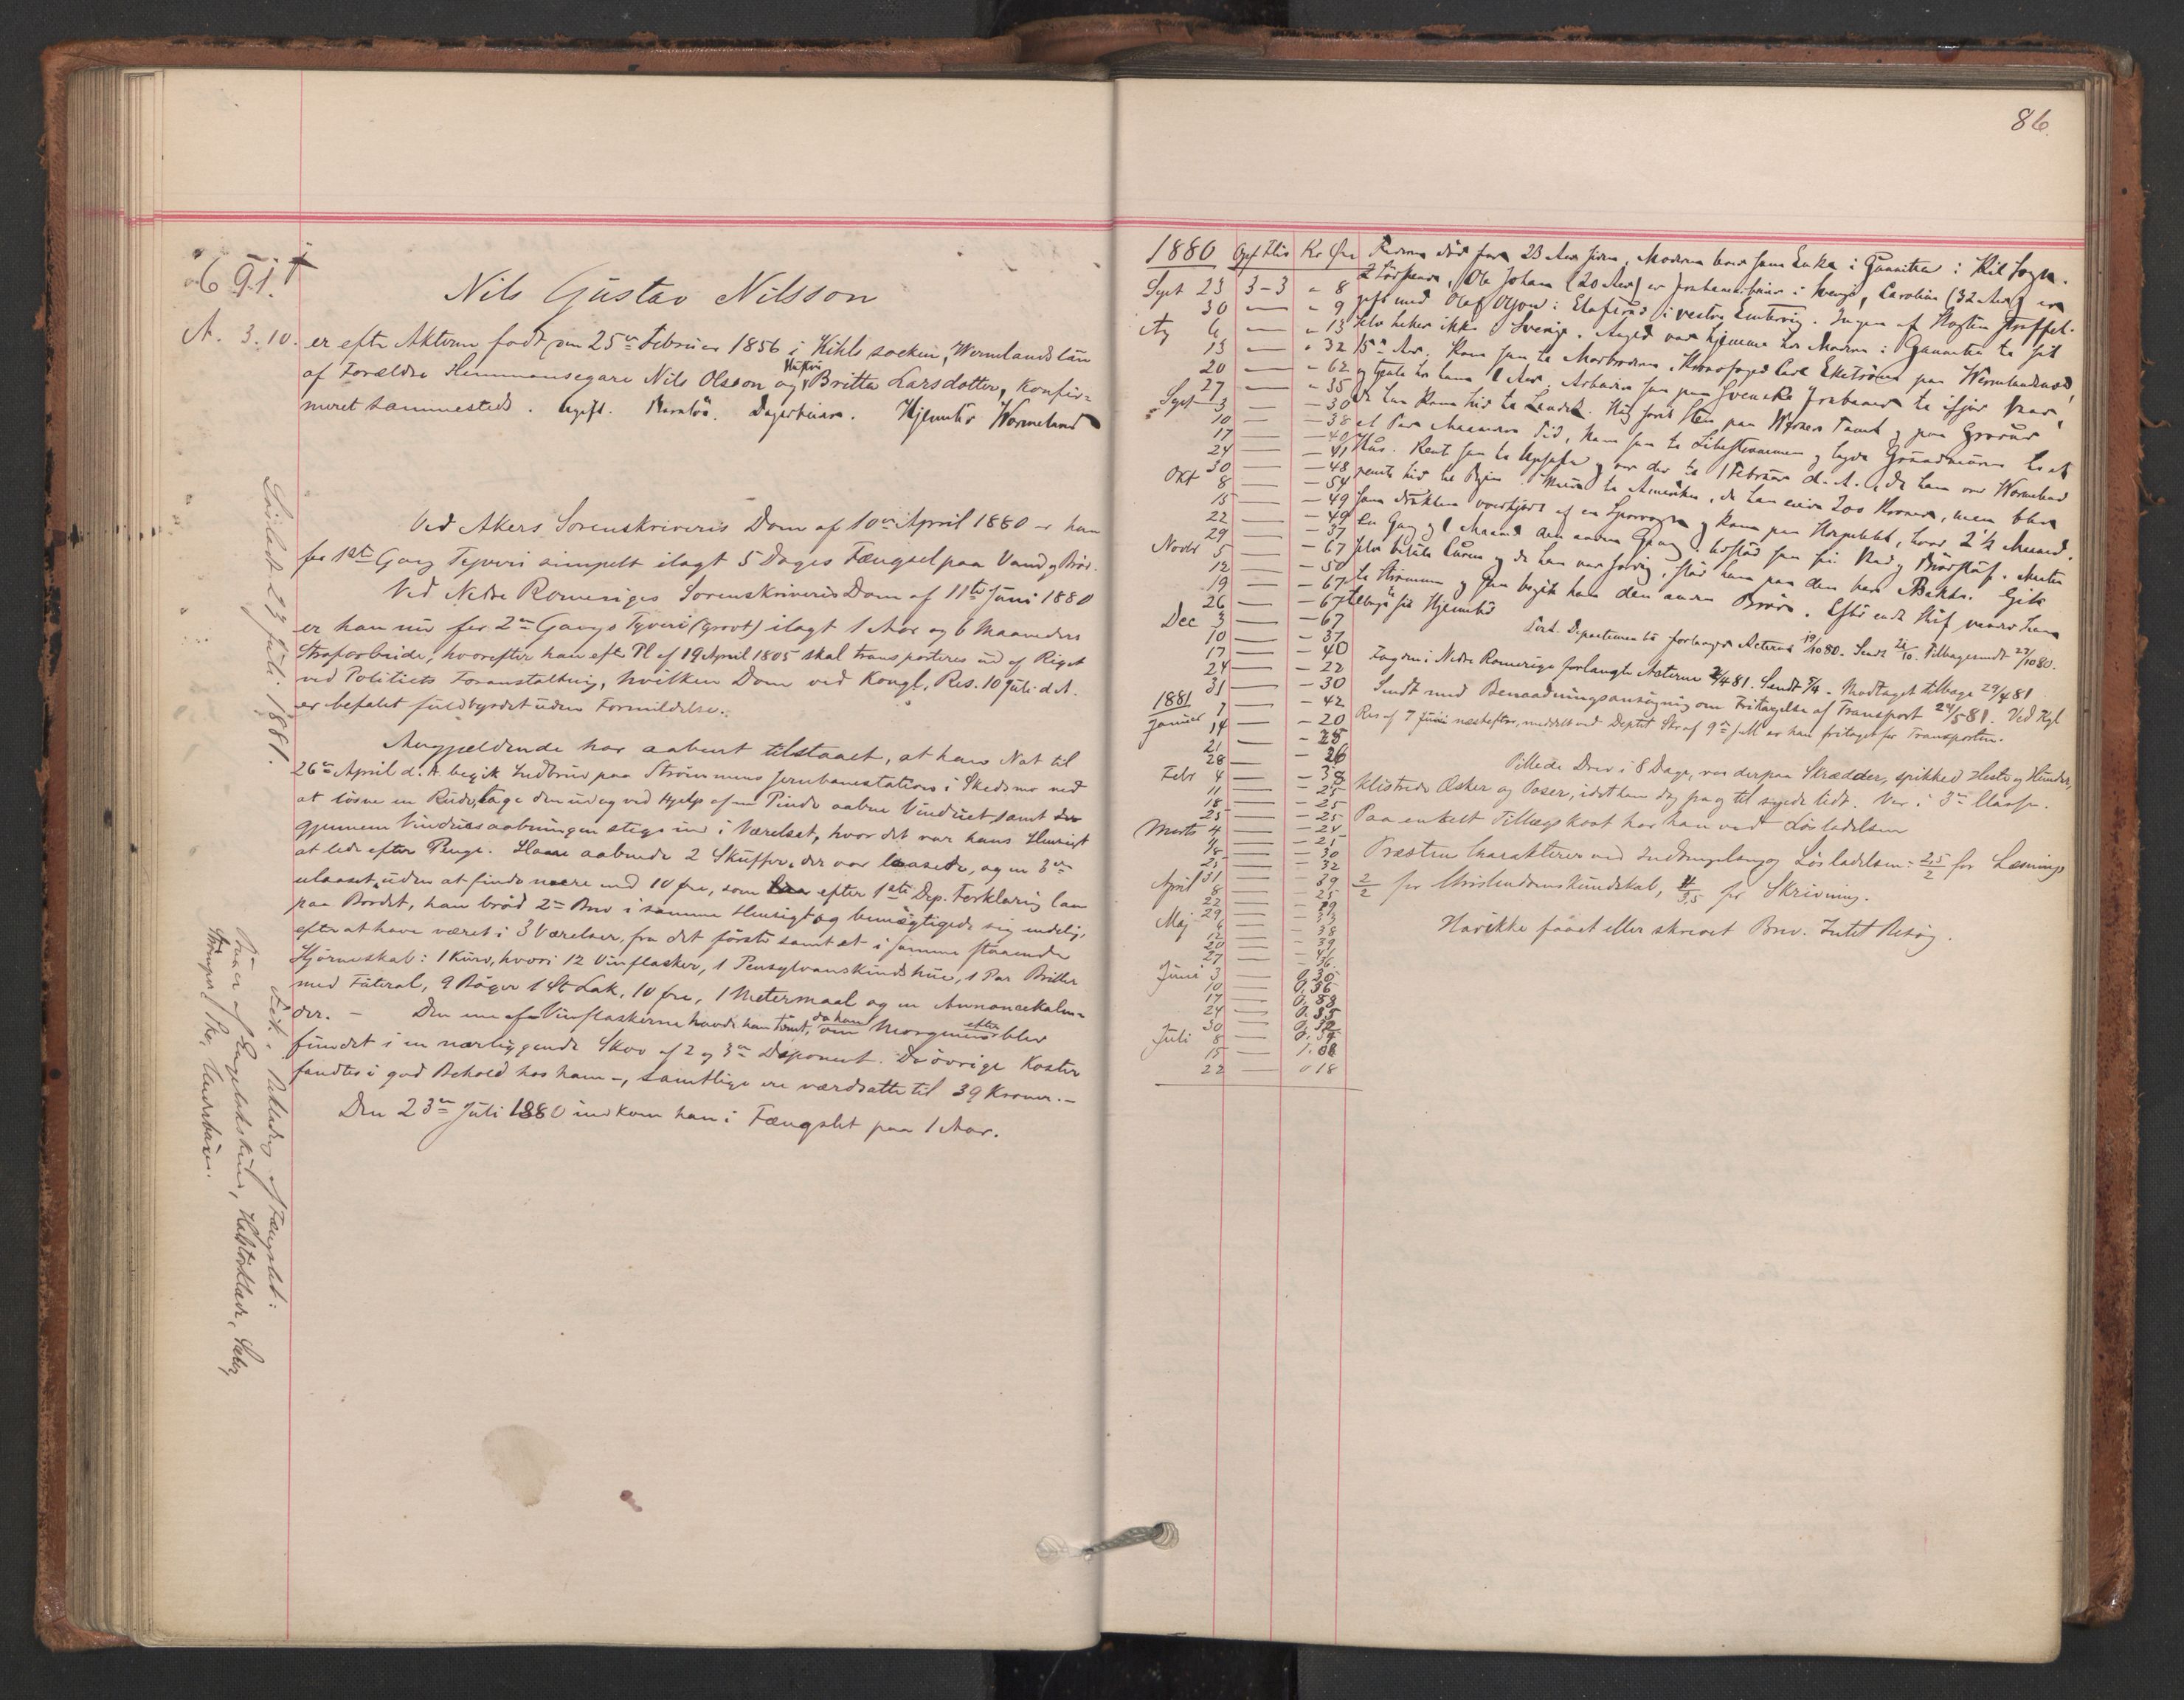 691.
A. 3.10.
Nils Gustav Nilsson
er efter Akterne født den 25de Februar 1856 i Kihls socken, Wermlands län
af Forældre Hemmansegare Nils Olsson og Hustru Britta Larsdotter, Konfir-
meret sammesteds. Ugift. Barnløs. Dagarbeider. Hjemsted Wermeland
Ved Akers Sorenskriveris Dom af 10de April 1880 er han
for 1ste Gang Tyveri simpelt ilagt 5 Dages Fængsel paa Vand og Brød.
Ved Nedre Romeriges Sorenskriveris Dom af 11te Juni 1880
er han nu for 2den Gangs Tyveri (grovt) ilagt 1 Aar og 6 Maaneders
Strafarbeide, hvorefter han efter Pl. af 19 April 1805 skal transporteres ud af Riget
ved Politiets Foranstaltning, hvilken Dom ved Kongl. Res. 10 Juli d.A.
er befalet fuldbyrdet uden Formildelse.
Angjældende har aabent tilstaaet, at han Nat til
26de April d.A. begik Indbrud paa Strømmens Jernbanestation i Skedsmo ved
at løsne en Rude, tage den ud og ved Hjelp af en Pinde aabne Vinduet, samt
gjennem Vinduesaabningen stige ind i Værelset, hvor det var hans Hensigt
at lede efter Penge. Han aabnede 2 Skuffer, der var laasede, og en 3die
ulaaset, uden at finde mere end 10 øre, som efter 1ste Dep. Forklaring laa
paa Bordet, han brød 2de Brev i samme Hensigt og bemægtigede sig endelig,
efter at have været i 3 Værelser, fra det første samt et i samme staaende
Hjørneskab: 1 Kurv, hvori 12 Vinflasker, 1 Pensylvanskindshue, 1 Par Briller
med Futeral, 9 Bøger 1 St. Lak, 10 øre, 1 Metermaal og en Annoncekalen-
der. - Den ene af Vinflaskerne havde han tømt, da han om Morgenen efter blev
fundet i en nærliggende Skov af 2 og 3die Deponent. De øvrige Koster
fandtes i god Behold hos ham -, samtlige ere værdsatte til 39 Kroner. -
Den 23de Juli 1880 indkom han i Fængslet paa 1 Aar.
Løsladt 23 Juli 1881.
Fik Beklædning af Fængslet:
Buxer af Engelskskind, Halstørklæde, Sæler,
Strømper, Sko, Underbuxer.
86.
1880 Opf Flid Kr Øre
Sept 23 3-3 " 8
30 — " 9
Aug 6 — " 13
13 — " 32
20 — - 62
27 — - 35
Sept 3 — - 30
10 — - 38
17 — - 40
24 — - 41
30 — - 48
Okt 8 — - 54
15 — - 49
22 — - 49
29 — - 37
Novbr 5 — - 67
12 — - 50
19 — - 67
26 — - 67
Dec 3 — - 67
10 — - 37
17 — - 40
24 — - 22
31 — - 30
1881
Januar 7 — - 42
14 — - 20
21 — - 25
28 — - 26
Febr 4 — - 38
11 — - 25
18 — - 25
25 — - 25
Marts 4 — - 24
11 — - 21
18 — - 30
25 — - 32
31 — - 39
April 8 — - 25
22 — - 29
29 — - 33
Maj 6 — - 38
12 — - 39
20 — - 41
27 — - 36
Juni 3 — 0.30
10 — 0.56
17 — 0.88
24 — 0.85
30 — 0.32
Juli 8 — 0.54
15 — 1.08
22 — 0 18
Faderen død for 23 Aar siden, Moderen bor som Enke i Gunnita i Kil Sogn.
2 Søskende, Ole Johan (20 Aar) er Jernbanearbeider i Sverige, Carolina (32 Aar) er
gift med Olof Olson i vestre Emtervig. Ingen af Slægten straffet.
Selv heller ikke i Sverige. Angjed. var hjemme hos Moderen i Gunnita til sit
15de Aar. Kom saa til Morbroderen Carl Ekström paa Wermlandsnæs
og tjente hos ham 1 Aar. Arbeidede saa paa Svenske Jernbaner til ifjor Vaar,
da han kom hid til Landet. Hug først Sten paa Tomt og paa Grorud
et Par Maaneders Tid, kom saa til Lilestrømmen og lagde Grundmuren til et
Hus. Reiste saa til Upsala og var der til 1 Februar d.A., da han over Wermland
reiste hid til Byen. Vilde til Amerika, da han eiede 200 Kroner, men blev
som drukken overkjørt af en Sporvogn og kom paa Hospitalet, hvor 2½ Maaned
en Gang og 1 Maaned den anden Gang, hvoraf saa fri Kost og
selv betale Curen og da han var færdig, stod han paa den bare Bakke. Gik
til Strømmen og saa begik han den anden Brøde. Efter endt Straf vender han
tilbage til Hjemsted
Just. Departementet forlanger Acterne 19/10 80. Sendt 21/10. Tilbagesendt 27/10 80.
Fogden i Nedre Romerige forlangte Acterne 2/4 81. Sendt 5/4. Modtaget tilbage 29/4 81
Sendt med Benaadningsansøgning om Fritagelse af Transport 24/5 81. Ved Kgl
Res af 7 Juni næstefter, meddelt ved Deptets Skr af 9de s.M. er han fritaget for Transporten.
Pillede Drev i 8 Dage, var derpaa Skrædder, spikked Heste og Hunde,
klistrede Æsker og Poser, idet han dog paa og til syede lidt. Var i 3die Classe.
Paa enkelt Tillægskost har han ved Løsladelsen
Præstens Charakterer ved Indkomsten og Løsladelsen: 2,5/2 for Læsning
2/2 for Christendomskundskab, 4/3,5 for Skrivning.
Har ikke faaet eller skrevet Brev. Intet Besøg.